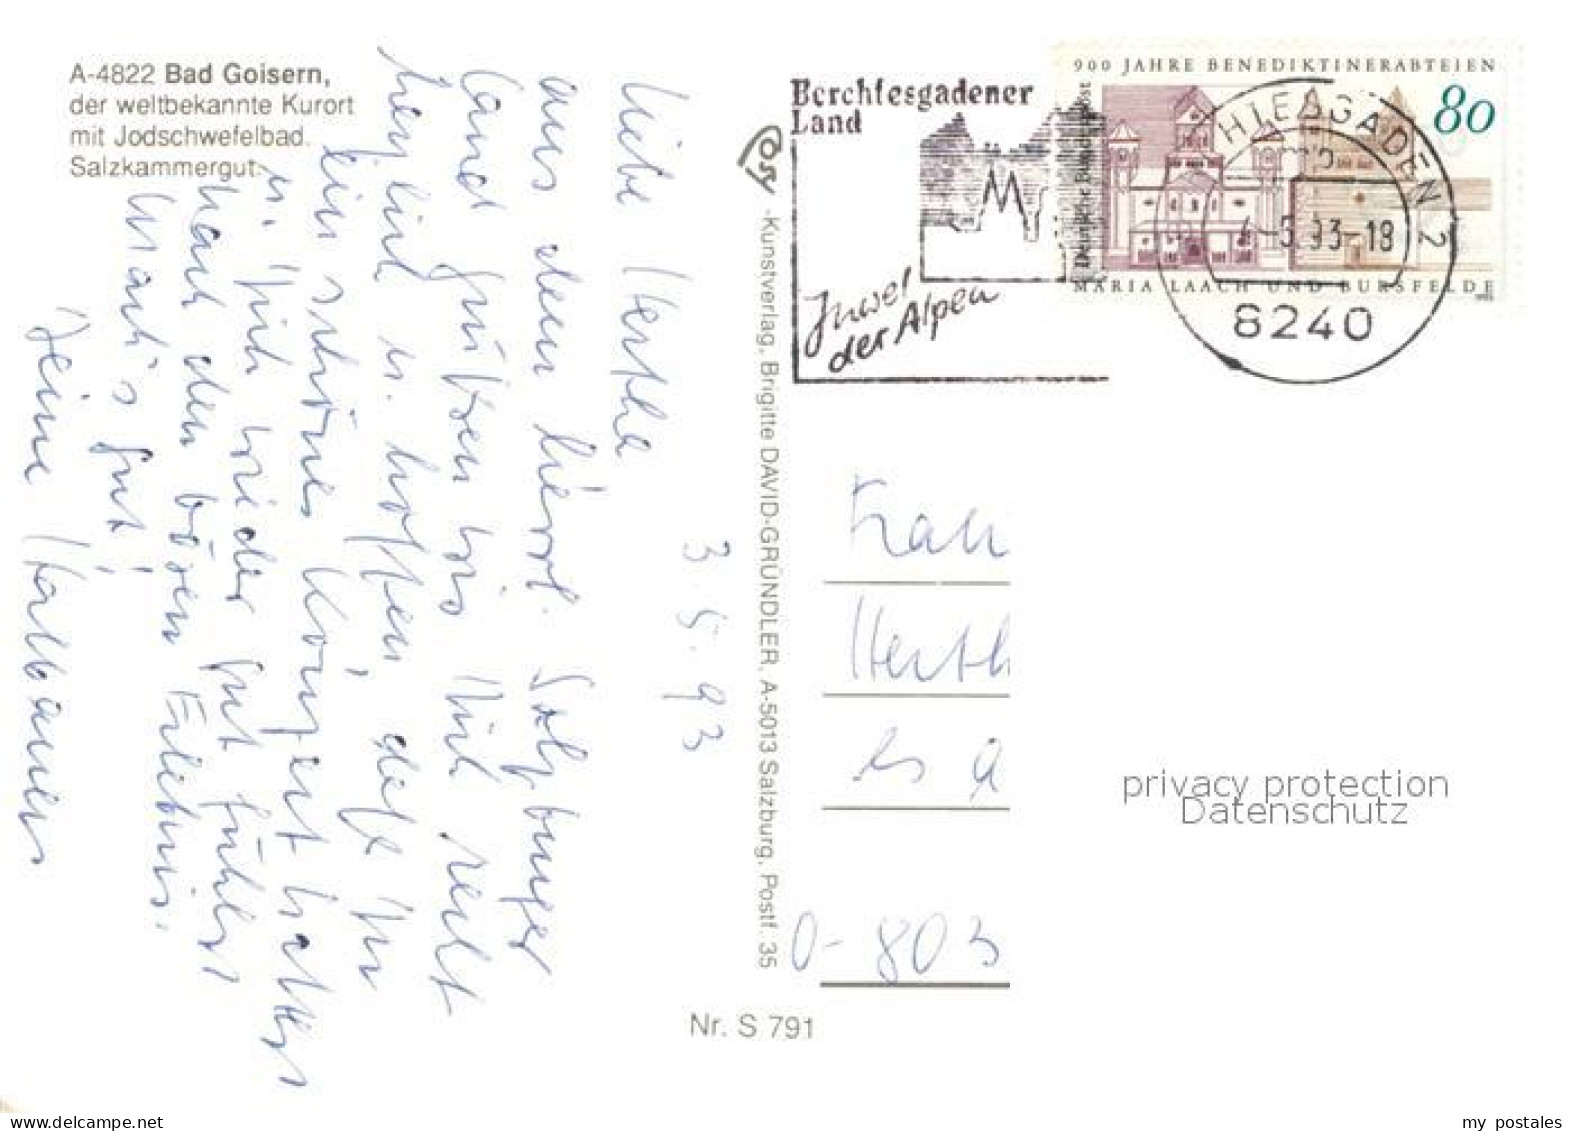 A-4822 Bad Goisern,
der weltbekannte Kurort
mit Jodschwefelbad.
Salzkammergut.
Cosy
-Kunstverlag, Brigitte DAVID-GRÜNDLER, A-5013 Salzburg, Postf. 35
Nr. S 791
3.5.93
Liebe Hertha
aus dem hierrl. Salzburger
Land grüßen wir Dich recht
herzlich u. hoffen, daß Du
ein schönes Konzert hattest
u. Dich wieder gut fühlst
nach dem bösen Erlebnis.
Mach's gut!
Deine Kaltbauers
Berchtesgadener
Land
Juwel
der Alpen
900 JAHRE BENEDIKTINERABTEIEN
80
Deutsche Bundespost
MARIA LAACH UND BURSFELDE
THESGADEN 2
-5.93-18
8240
Frau
Herth
0-803
privacy protection
Datenschutz
www.delcampe.net
my_postales